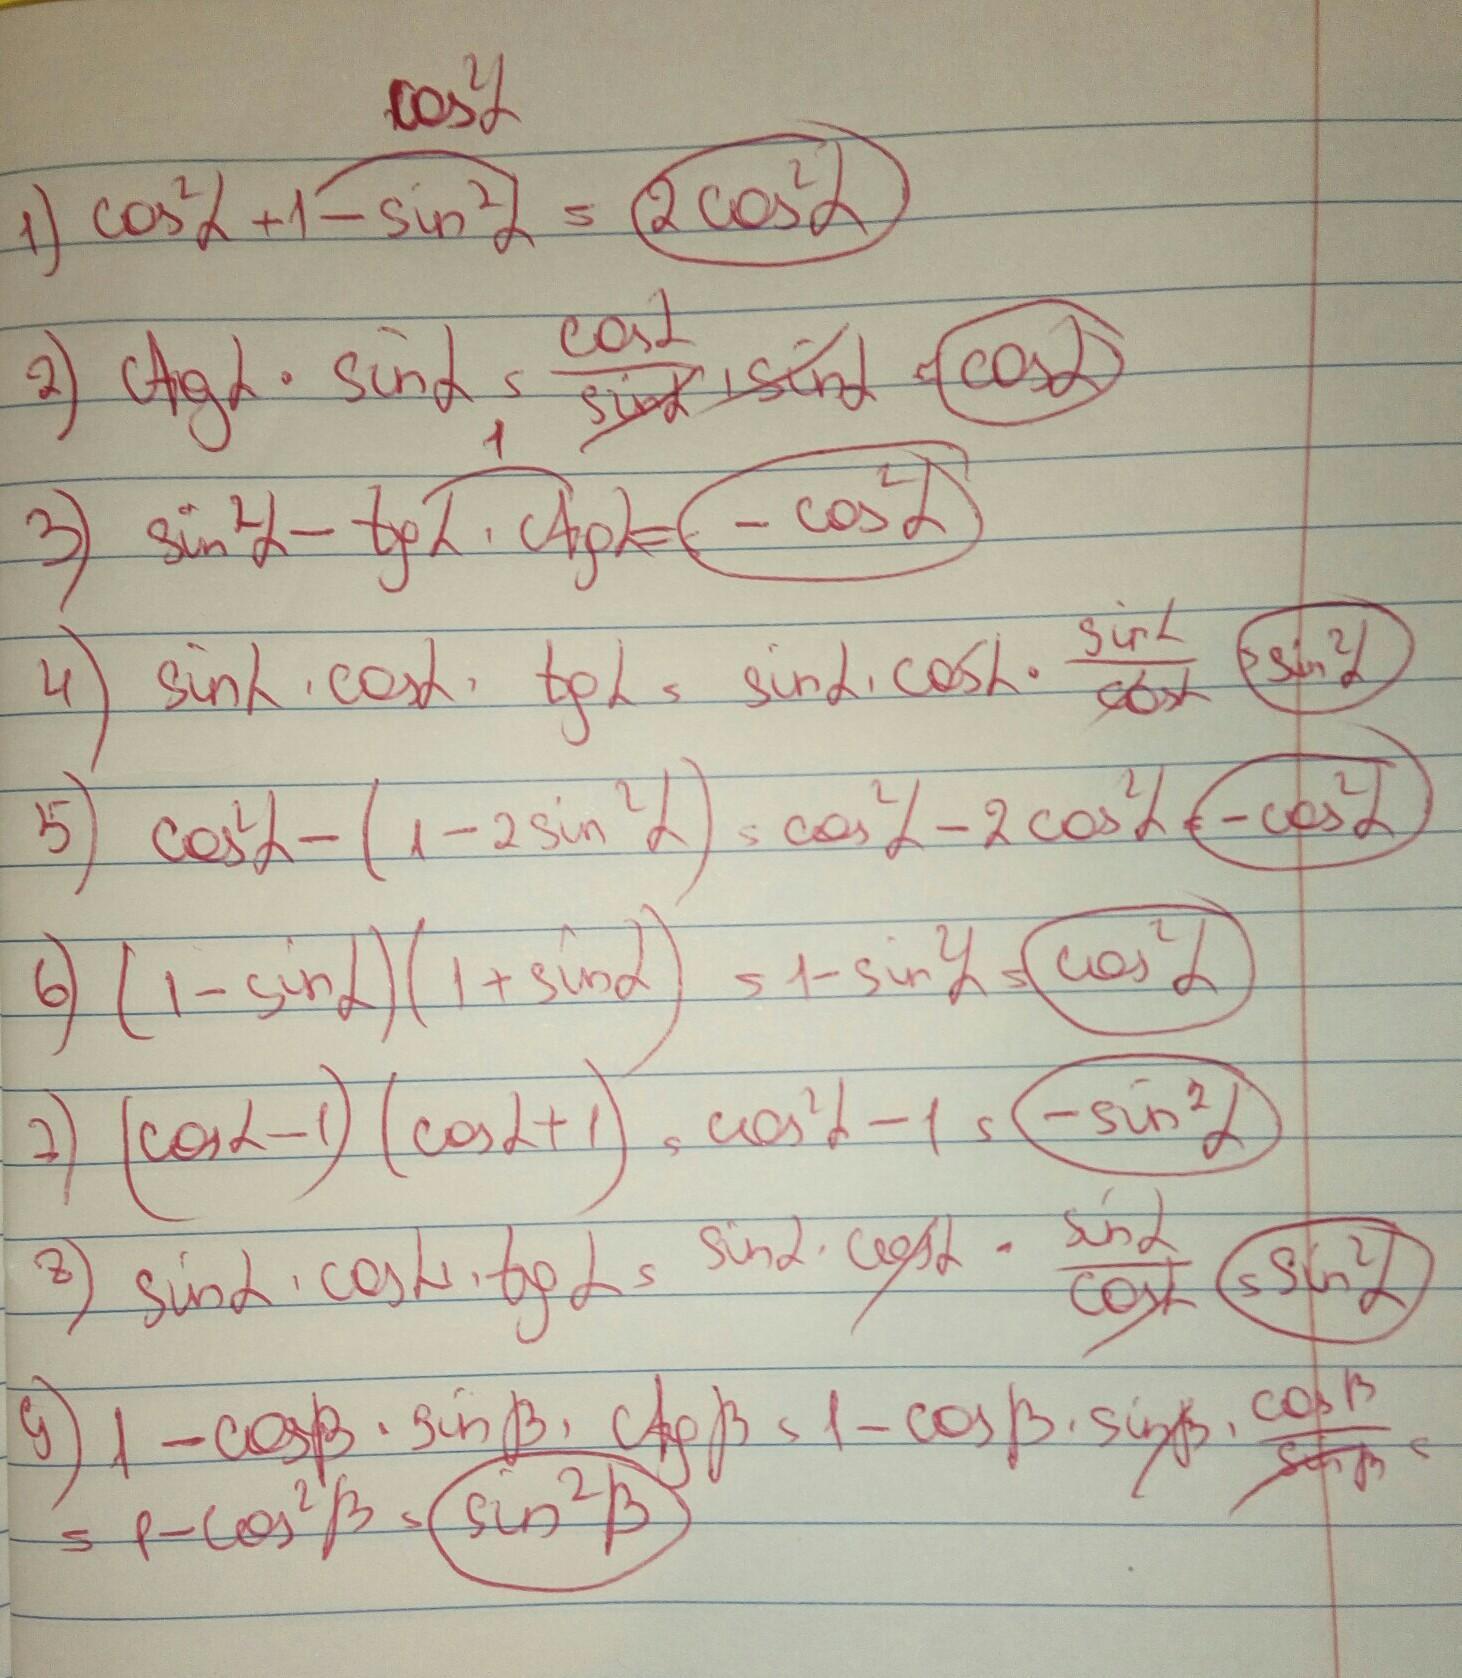 cos²α
1) cos²α + 1 - sin²α = 2cos²α
2) ctgα · sinα = cosα/sinα · sinα = cosα
1
3) sin²α - tgα · ctgα = - cos²α
4) sinα · cosα · tgα = sinα · cosα · sinα/cosα = sin²α
5) cos²α - (1 - 2sin²α) = cos²α - 2cos²α = - cos²α
6) (1 - sinα)(1 + sinα) = 1 - sin²α = cos²α
7) (cosα - 1)(cosα + 1) = cos²α - 1 = - sin²α
8) sinα · cosα · tgα = sinα · cosα · sinα/cosα = sin²α
9) 1 - cosβ · sinβ · ctgβ = 1 - cosβ · sinβ · cosβ/sinβ =
= 1 - cos²β = sin²β